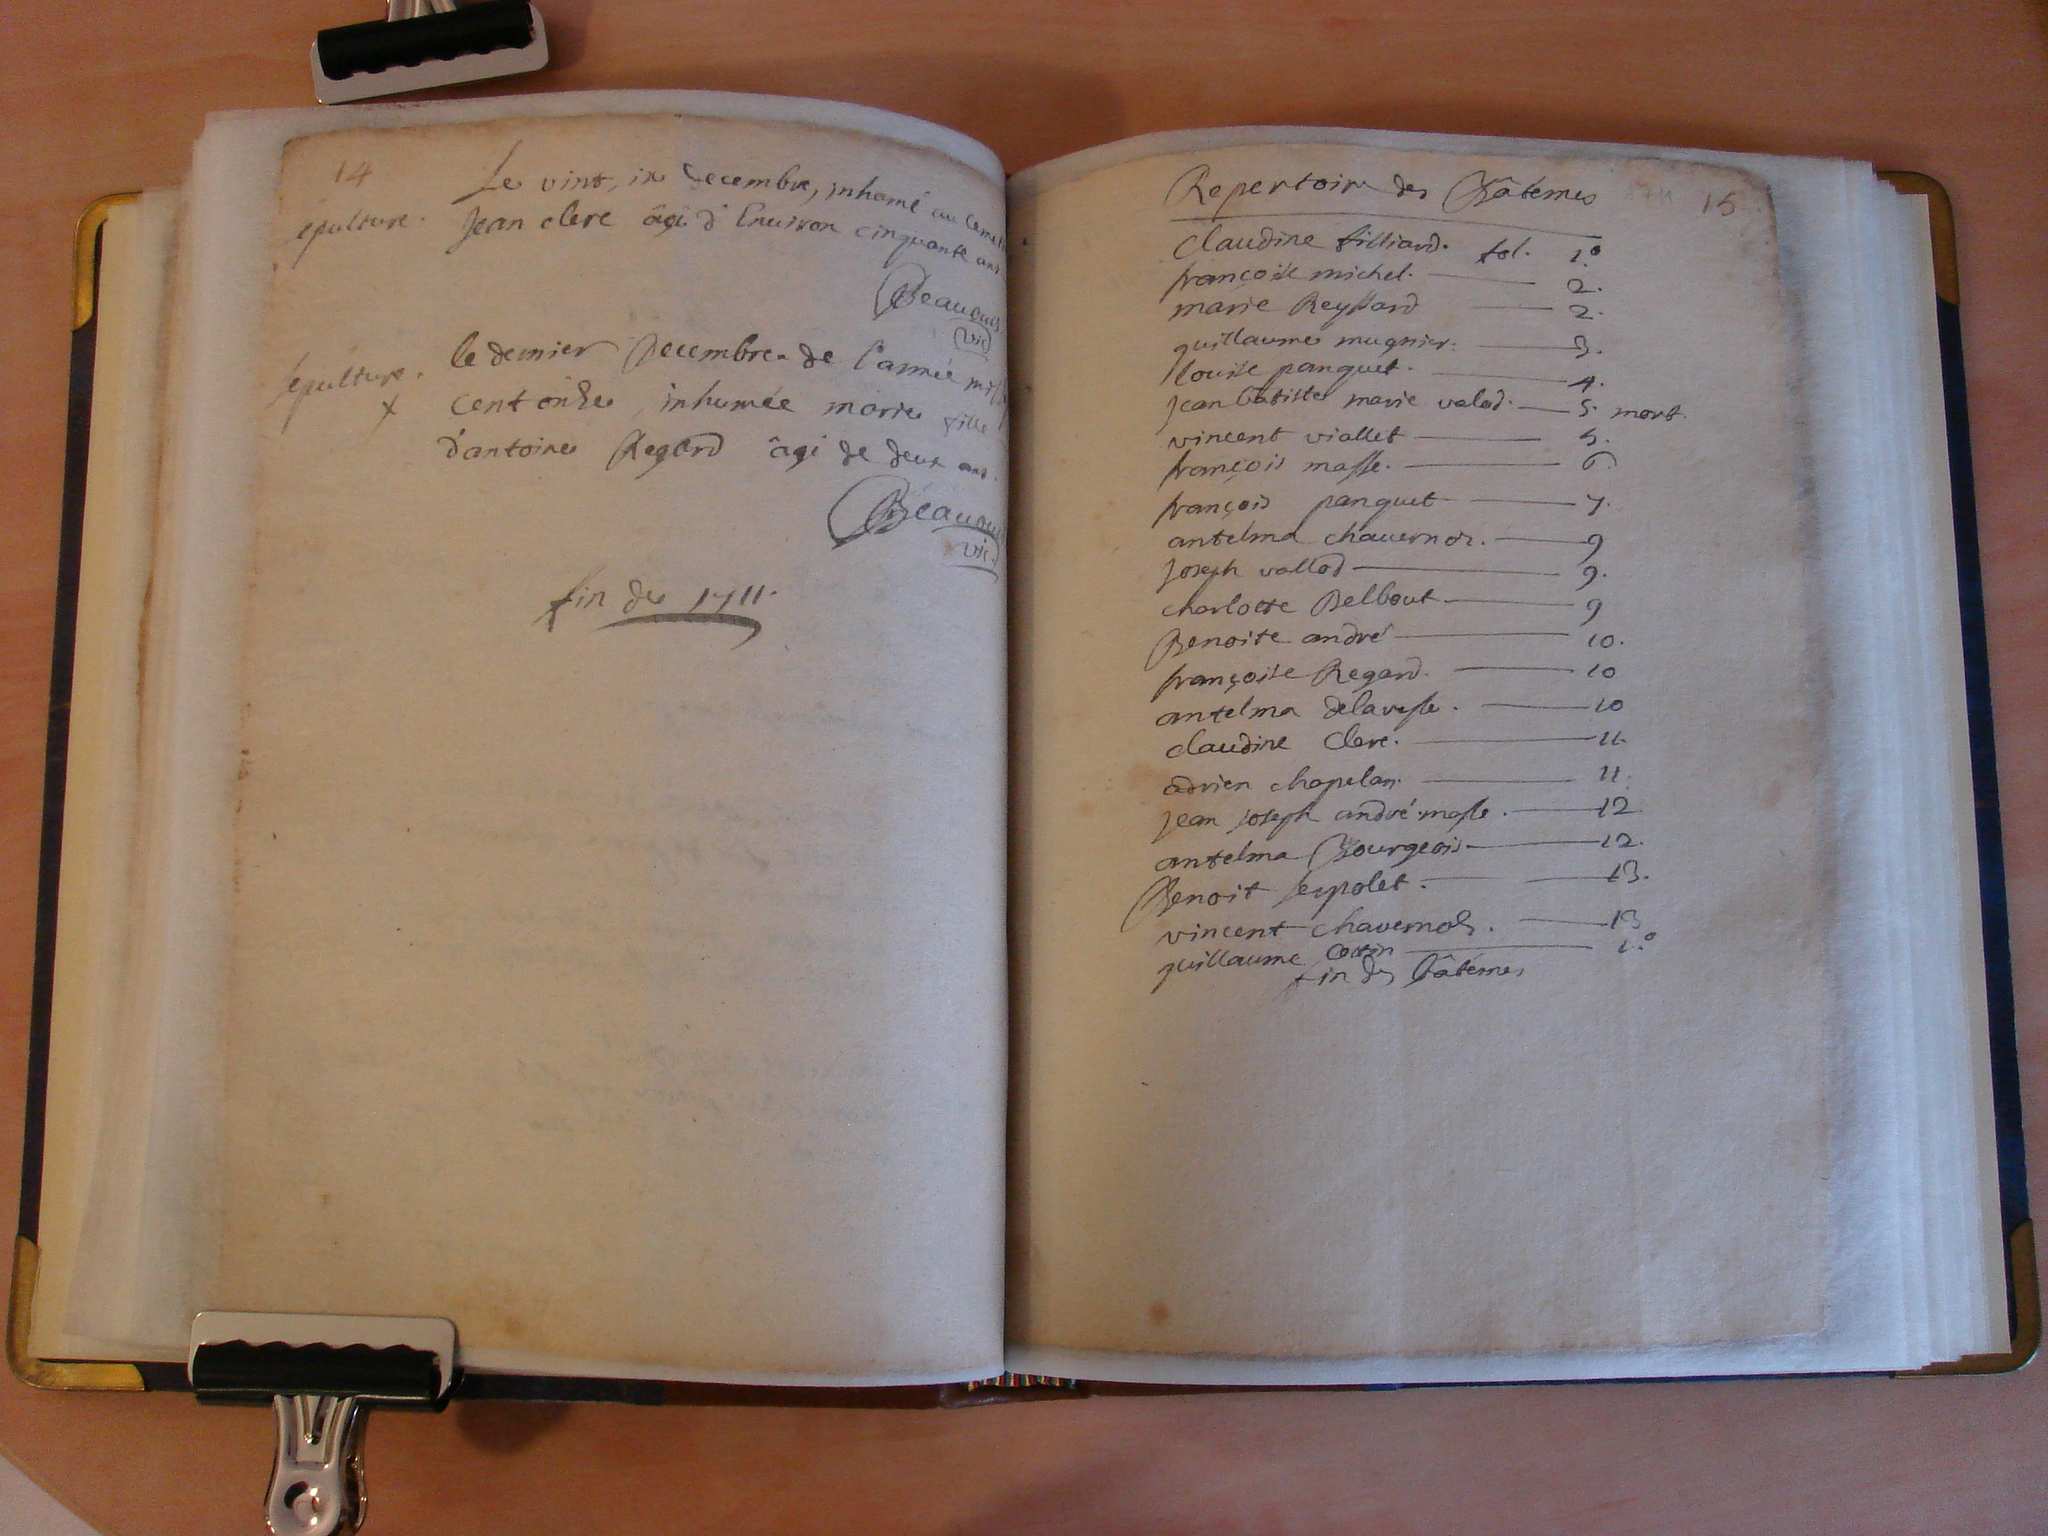 14
Le vint, in decembre, inhomé au
sépulture. Jean clerc âgé d'Environ cinquante ans
Beauouis
vic
sepulture. le dernier Decembre de l'année mil
x centonze, inhumée marie fille
d'antoine Regard âgé de deux ans.
Beauou
vic.
fin de 1711.
Repertoire des Bâtêmes 1711 15
Claudine filliard. fol. 1.°
françoise michel. 2.
marie Reyssard 2.
guillaume mugnier. 3.
louise panguet. 4.
Jean batiste marie valod. 5. mort
vincent viallet 5.
françois masse. 6.
françois panguet 7.
antelma chauernoz. 9
Joseph vallod 9.
charlotte Belbout 9
Benoite andré 10.
françoise Regard. 10
antelma delavesse. 10
claudine clerc. 11.
adrien chapelan. 11.
Jean Joseph andré masse. 12
antelma Bourgeois 12.
Benoit seypolet. 13.
vincent chavernoz. 13
guillaume cottin 1.°
fin des bâtêmes